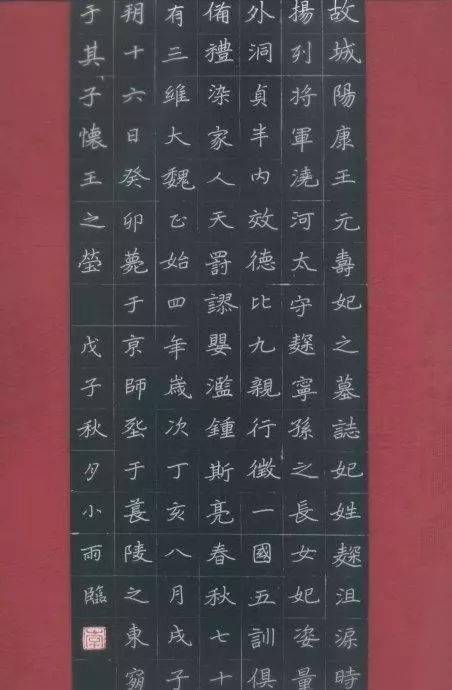 故城陽康王元壽妃之墓誌妃姓麹沮時
揚列將軍澆河太守麹寧孫之長女妃姿量
外洞貞半内效德比九親行徵一國五訓俱
備禮染家人天罰謬嬰濫鍾斯亮春秋七十
有三維大魏正始四年歲次丁亥八月戊子
朔十六日癸卯薨于京師塟于萇陵之東窮
于其子懷王之塋 戊子秋夕小雨臨